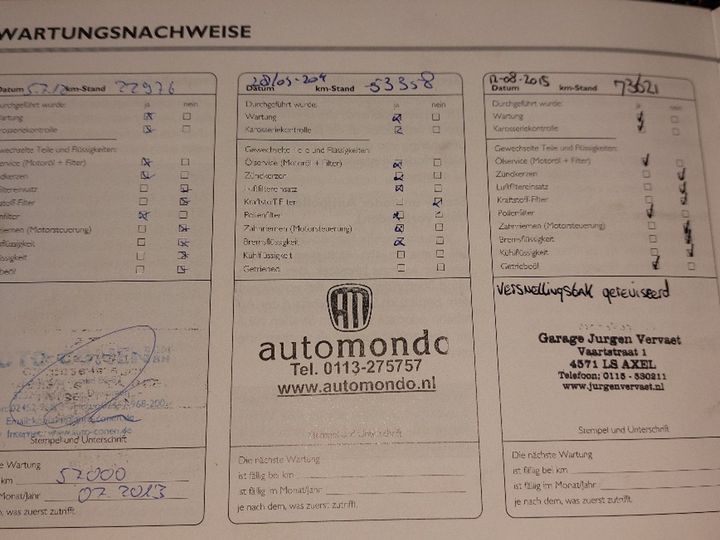 WARTUNGSNACHWEISE
Datum 5.7.12 km-Stand 22976
urchgeführt wurde: ja nein
artung
rosseriekontrolle
ewechselte Teile und Flüssigkeiten:
lservice (Motoröl + Filter)
ndkerzen
ftfiltereinsatz
aftstoff-Filter
ollenfilter
ahnriemen (Motorsteuerung)
emsflüssigkeit
ühlflüssigkeit
etriebeöl
Stempel und Unterschrift
e nächste Wartung
km 52000
Monat/Jahr 07.2013
nach dem, was zuerst zutrifft.
Datum km-Stand 53358
Durchgeführt wurde: ja nein
Wartung
Karosseriekontrolle
Gewechselte Teile und Flüssigkeiten:
Ölservice (Motoröl + Filter)
Zündkerzen
Luftfiltereinsatz
Kraftstoff-Filter
Pollenfilter
Zahnriemen (Motorsteuerung)
Bremsflüssigkeit
Kühlflüssigkeit
Getriebeöl
automondo
Tel. 0113-275757
www.automondo.nl
Stempel und Unterschrift
Die nächste Wartung
ist fällig bei km
ist fällig im Monat/Jahr
je nach dem, was zuerst zutrifft.
12-08-2015
Datum km-Stand 73621
Durchgeführt wurde: ja nein
Wartung
Karosseriekontrolle
Gewechselte Teile und Flüssigkeiten:
Ölservice (Motoröl + Filter)
Zündkerzen
Luftfiltereinsatz
Kraftstoff-Filter
Pollenfilter
Zahnriemen (Motorsteuerung)
Bremsflüssigkeit
Kühlflüssigkeit
Getriebeöl
VERSNELLINGSBAK gereviseerd
Garage Jurgen Vervaet
Vaartstraat 1
4571 LS AXEL
Telefoon: 0115 - 530211
www.jurgenvervaet.nl
Stempel und Unterschrift
Die nächste Wartung
ist fällig bei km
ist fällig im Monat/Jahr
je nach dem, was zuerst zutrifft.